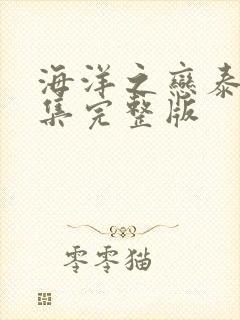 海洋之戀泰
集完整版
零零猫